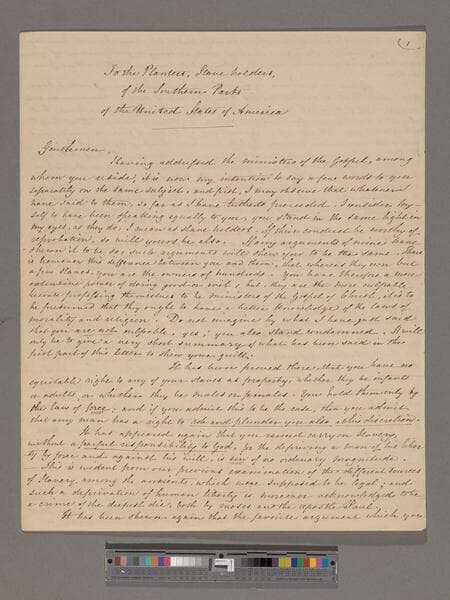 1
To the Planters, Slave holders,
of the Southern Parts
of the United States of America
Gentlemen,
Having addressed the ministers of the Gospel, among
whom you reside, it is now my intention to say a few words to you
separately on the same subject, and first, I may observe that whatever I
have said to them, so far as I have hitherto proceeded. I consider my-
self to have been speaking equally to you. you stand in the same light in
my eyes, as they do, I mean as slave holders. If their conduct be worthy of
reprobation, so will yours be also. If any arguments of mine have
shewn it to be so, such arguments will shew yours to be the same. There
is however this difference between you and them, that whereas they own but
a few slaves. you are the owners of hundreds. You have therefore a more
extensive power of doing good or evil; but, they are the more culpable,
because professing themselves to be ministers of the Gospel of Christ, it is to
be presumed that they ought to have a better knowledge of the laws of
morality and religion. Do not imagine by what I have just said
that you are not culpable. yes; you also stand condemned. It will
only be to give a very short summary of what has been said in the
first part of this letter to shew your guilt.
It has been proved there, that you have no
equitable right to any of your slaves as property, whether they be infants
or adults, or whether they be males or females. You hold them only by
the law of force; and if you admit this to be the case, then you admit
that any man has a right to rob and plunder you also, at his discretion.
It has appeared again that you cannot carry on Slavery,
without a fearful responsibility to God, for the depriving a man of his liber
ty by force and against his will, is sin of no ordinary magnitude.
This is evident from our previous examination of the different sources
of Slavery among the ancients, which were supposed to be legal; and
such a deprivation of human liberty is moreover acknowledged to be
a crime of the deepest die, both by Moses and the apostle Paul.
It has been shown again that the favorite argument which you